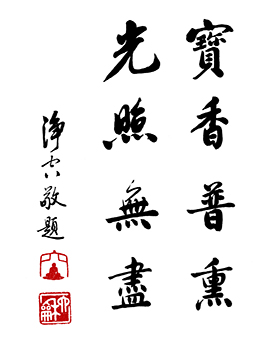 寶香普熏
光照無盡
淨空敬題